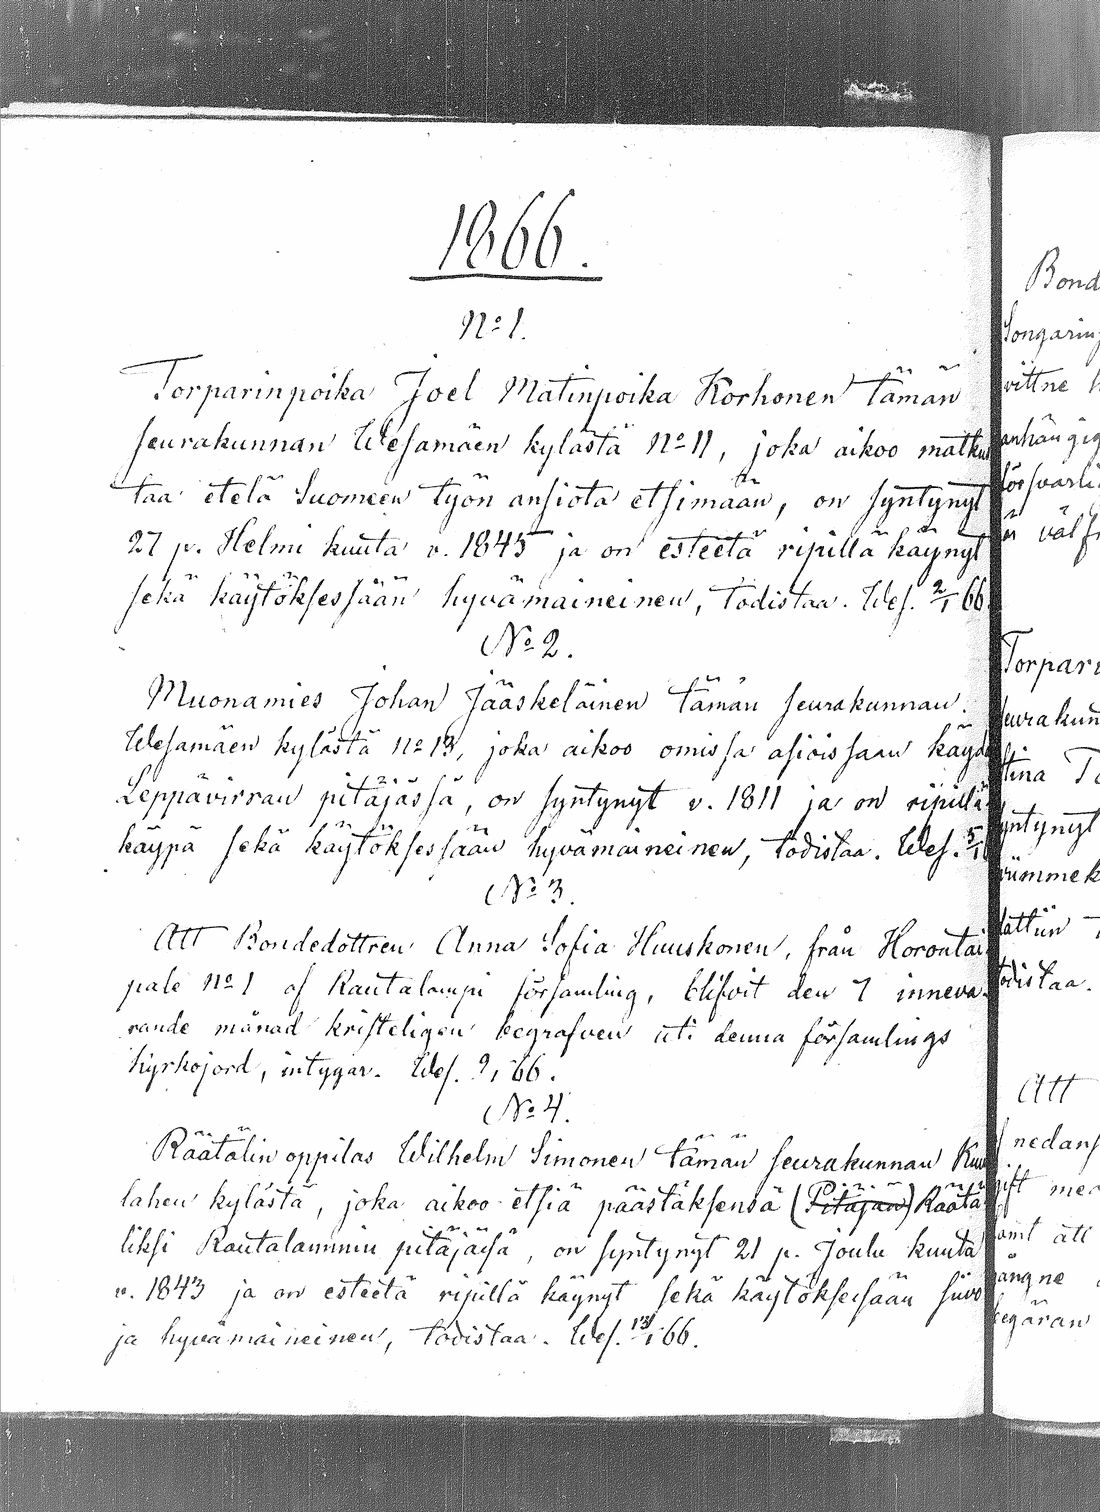 1866.
No 1.
Torparinpoika Joel Matinpoika Korhonen tämän
seurakunnan Wesamäen kylästä No 11, joka aikoo matkus
taa etelä Suomeen työn ansiota etsimään, on syntynyt
27 p. Helmi kuuta v. 1845 ja on esteetä ripillä käynyt
sekä käytöksessään hyvämaineinen, todistaa. Wes. 2/1 66.
No 2.
Muonamies Johan Jääskeläinen tämän seurakunnan
Wesamäen kylästä No 13, joka aikoo omissa asioissaan käydä
Leppävirran pitäjässä, on syntynyt v. 1811 ja on ripillä
käypä sekä käytöksessään hyvämaineinen, todistaa. Wes. 5/1
No 3.
Att Bondedottren Anna Sofia Huuskonen, från Horontai
pale No 1 af Rautalampi församling, blifvit den 7 inneva
rande månad kristeligen begrafven uti denna församlings
kyrkojord, intygar. Wes. 9/1 66.
No 4.
Räätälin oppilas Wilhelm Simonen tämän seurakunnan
lahen kylästä, joka aikoo etsiä päästäksensä (Pitäjän) Räätä
liksi Rautalammin pitäjäisä, on syntynyt 21 p. Joulu kuuta
v. 1843 ja on esteetä ripillä käynyt sekä käytöksessään siivo
ja hyvämaineinen, todistaa. Wes. 13/1 66.
Bond
vittne
anhängig
Torpari
seurakun
tina
syntynyt
todistaa.
Att
nedans
gift med
samt att
begäran